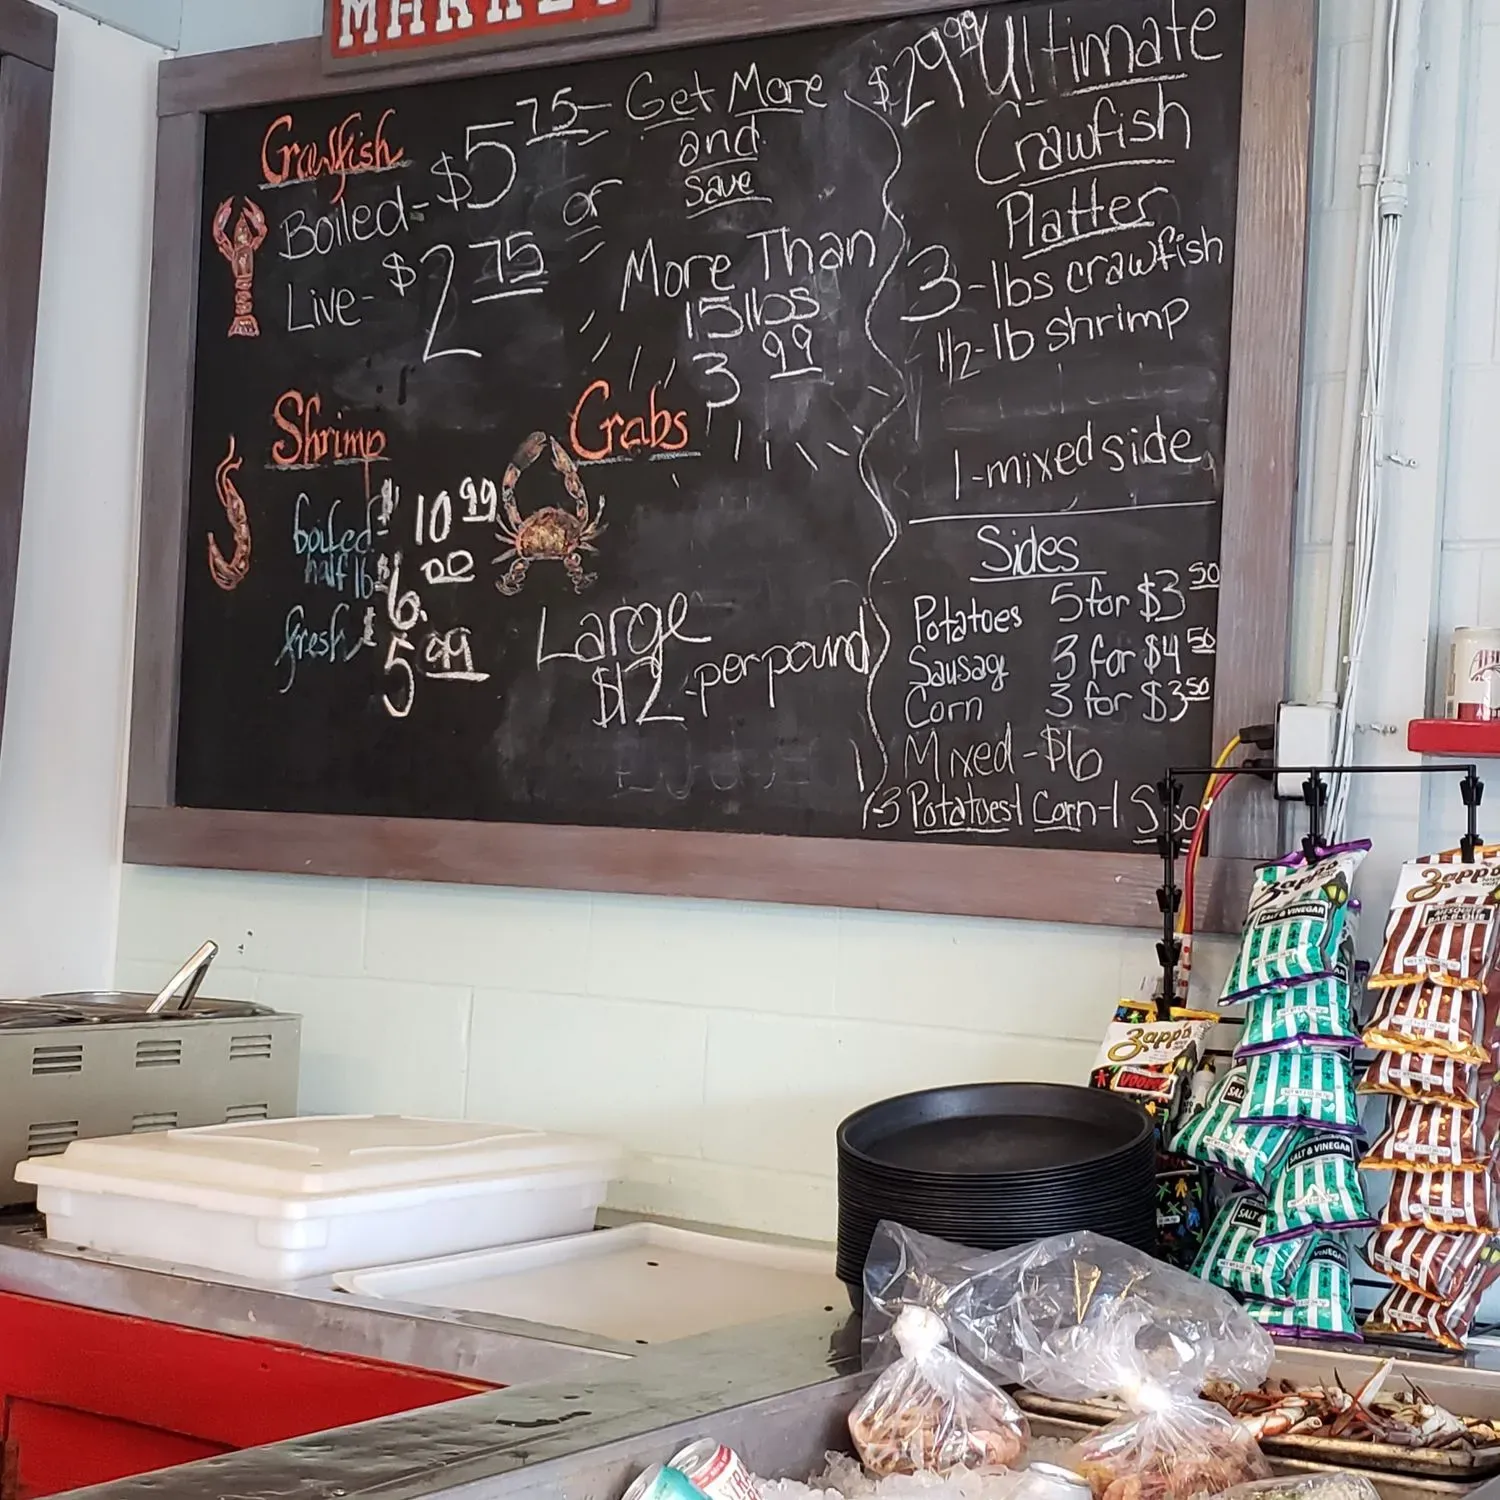 MARKET
Crawfish
Boiled - $5 75
Live - $2 75
or
Get More
and
save
More Than
15 lbs
3 99
Shrimp
boiled - $10 99
half lb $6.00
fresh $5 99
Crabs
Large
$12 - per pound
$29 99 Ultimate
Crawfish
Platter
3 - lbs crawfish
1/2 - lb shrimp
1 - mixed side
Sides
Potatoes 5 for $3 50
Sausag 3 for $4 50
Corn 3 for $3 50
Mixed - $6
1-3 Potatoes 1 Corn - 1 S
Zapp's
SALT & VINEGAR
Zapp's
MESQUITE
BAR-B-QUE
Zapp's
VOODOO
SALT & VINEGAR
SALT
VINEGAR